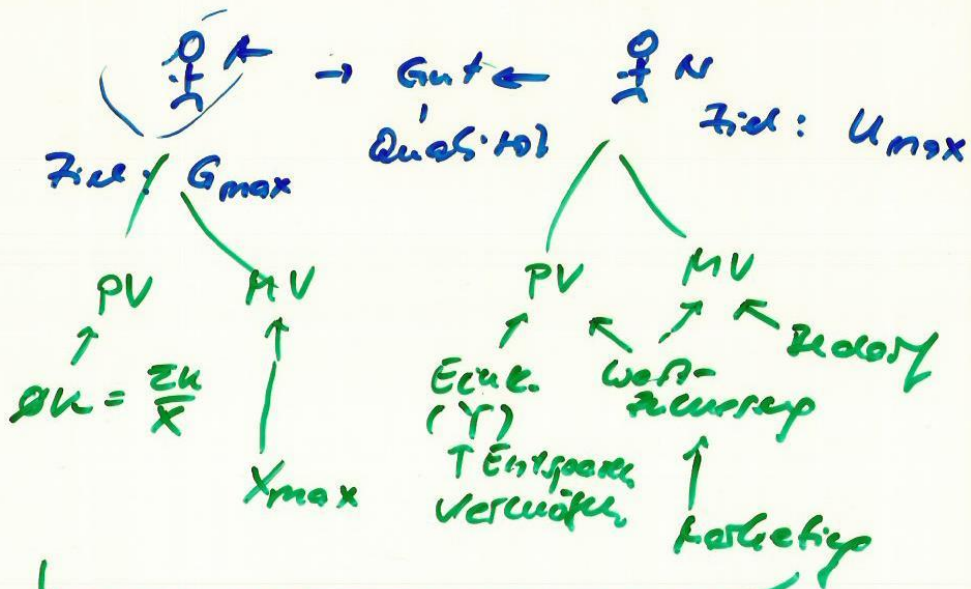 A → Gut ← N
Qualität
Ziel: Gmax
Ziel: Umax
PV MV
PV MV
øK = ΣK
X
Xmax
Eink.
(Y)
↑ Entsparen
Vermögen
Wert-
Bedarf
Marketing